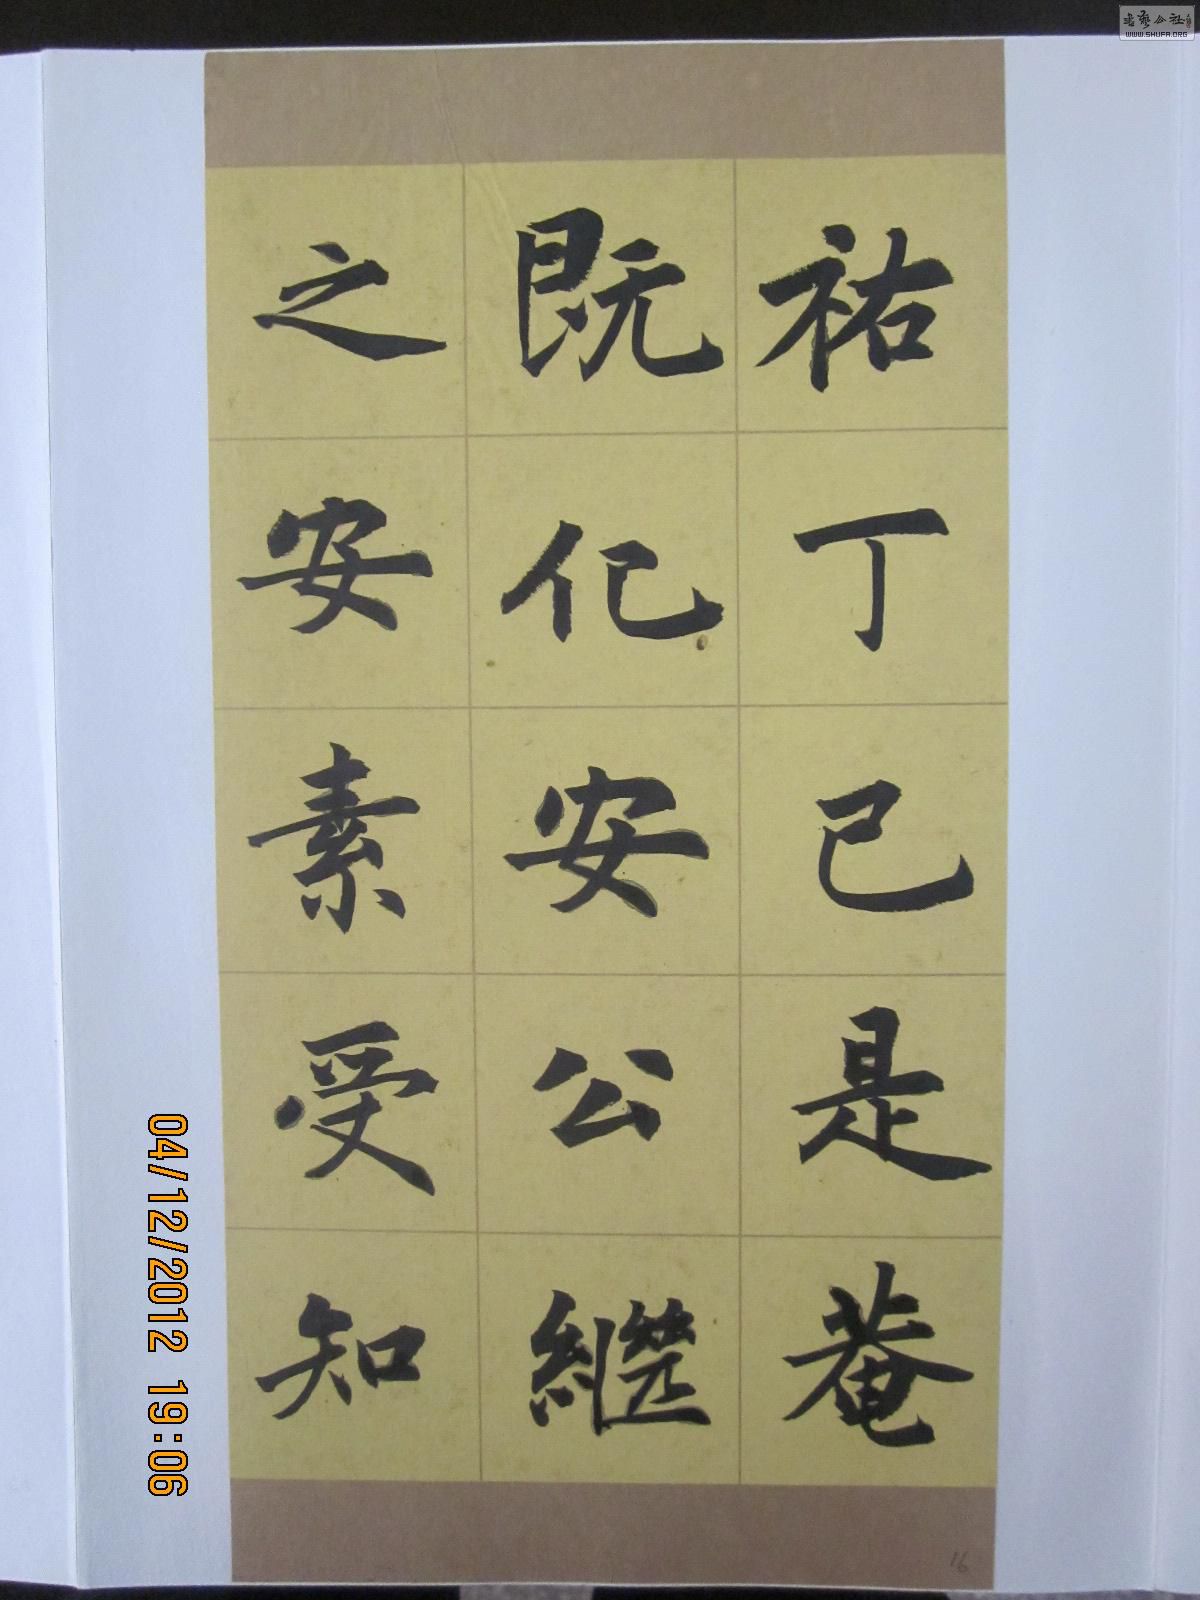 祐丁巳是菴
既化安公繼
之安素受知
16
04/12/2012 19:06
書藝公社
WWW.SHUFA.ORG